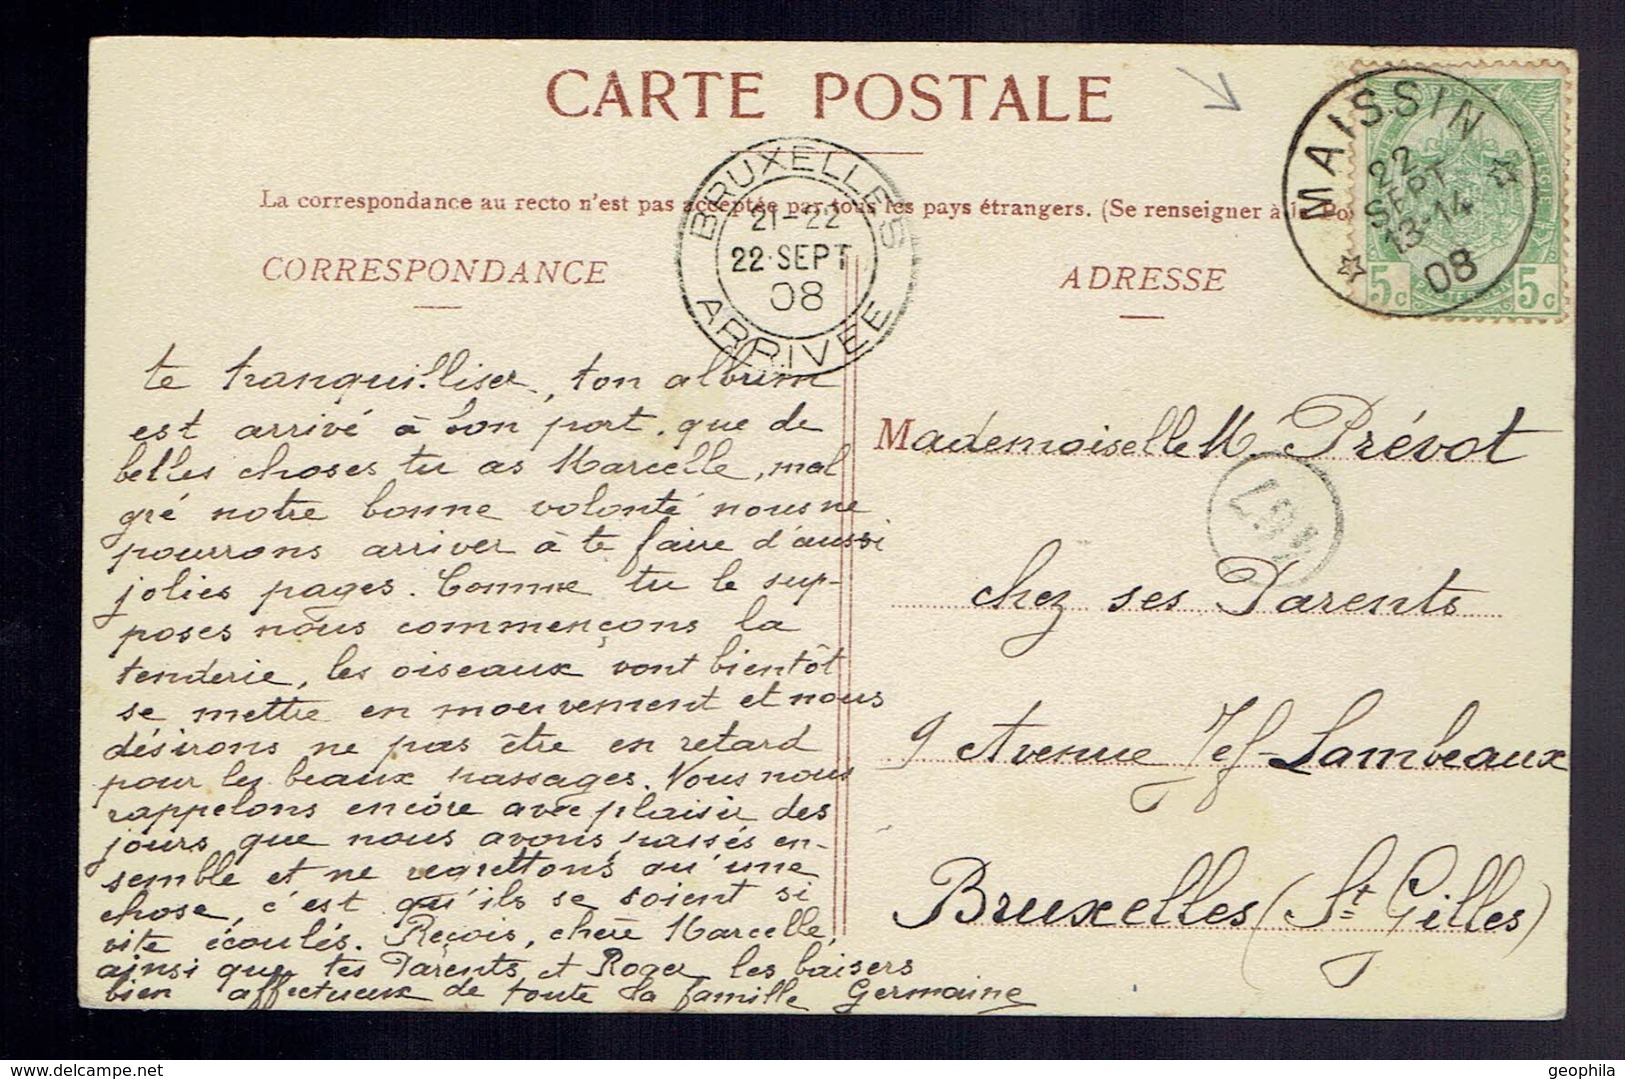 CARTE POSTALE
La correspondance au recto n'est pas acceptée par tous les pays étrangers. (Se renseigner à la Po
CORRESPONDANCE
ADRESSE
BRUXELLES
21-22
22 SEPT
08
ARRIVEE
MAISSIN
22
SEPT
13-14
08
5c 5c
te tranquilliser, ton album
est arrivé à bon port, que de
belles choses tu as Marcelle, mal
gré notre bonne volonté nous ne
pourrons arriver à te faire d'aussi
jolies pages. Comme tu le sup-
poses nous commençons la
tenderie, les oiseaux vont bientôt
se mettre en mouvement et nous
désirons ne pas être en retard
pour les beaux passages. Nous nous
rappelons encore avec plaisir des
jours que nous avons passés en-
semble et ne regrettons qu'une
chose, c'est qu'ils se soient si
vite écoulés. Reçois, chère Marcelle,
ainsi que tes Parents et Roger les baisers
bien affectueux de toute la famille Germaine
Mademoiselle M. Prévot
chez ses Parents
9 Avenue Jef-Lambeaux
Bruxelles (St Gilles)
geophila